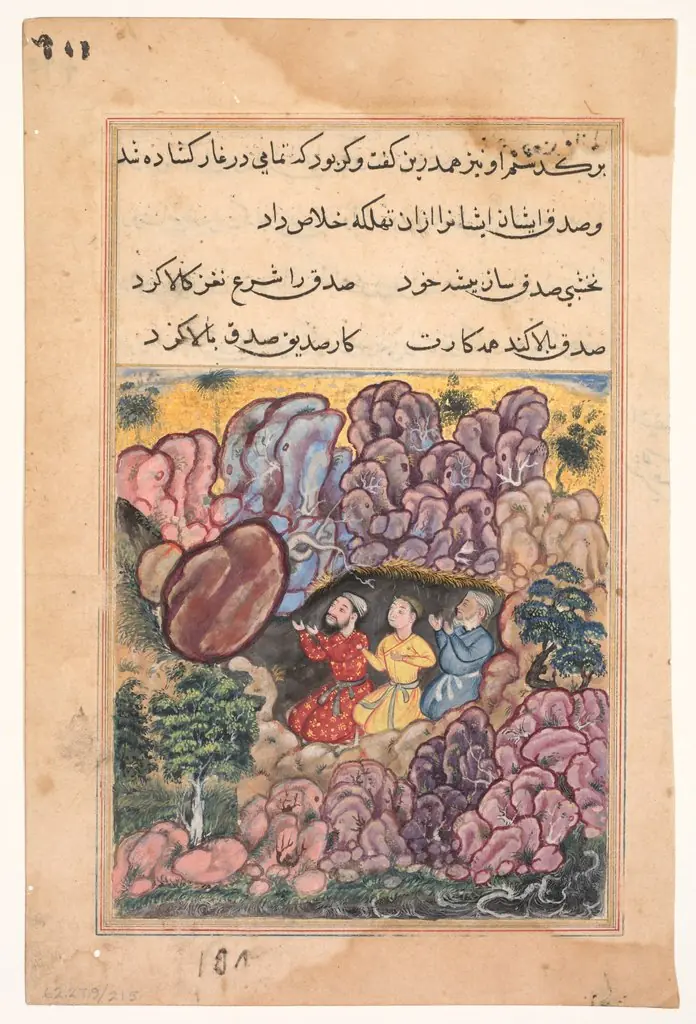 او نیز همدرین کفت وکو بود که تمامی در غار کشاده شد
و صدق ایشان ایشانرا ازان تهلکه خلاص داد
نخشبی صدق ساز پیشه خود صدق را شرع نغز کالا کرد
صدق بالا کند همه کارت کار صدیق صدق بالا کرد
62.279/215